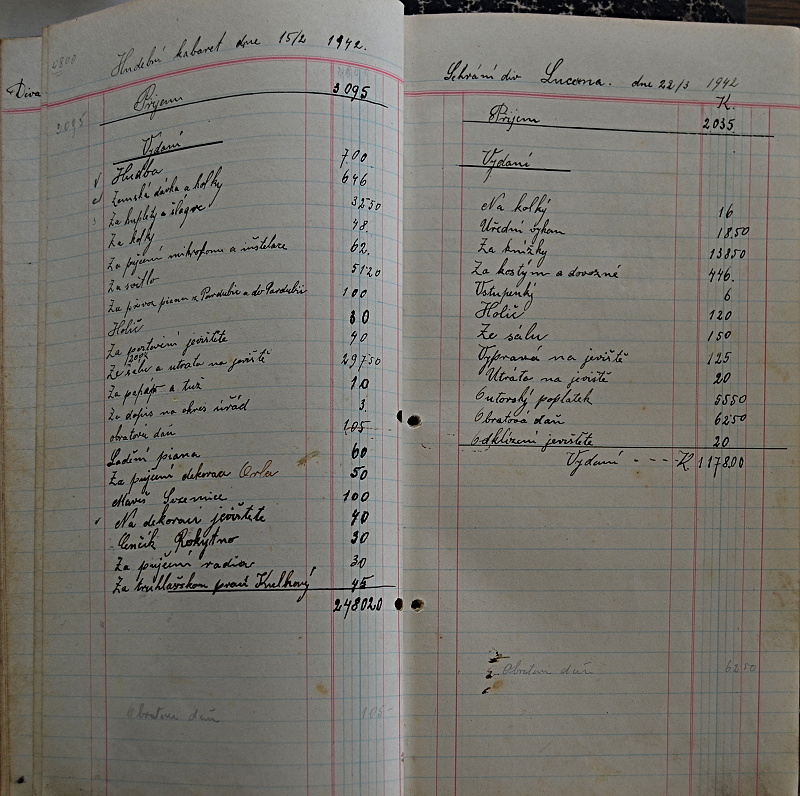 Díva
4800
Hudební kabaret dne 15/2 1942.
Příjem 3095
2095
Vydaní
Hudba 700
Zemská dávka a kolky 646
Za kuplety a šlágre 3250
Za kolky 48.
Za pujčení mikrofonu a inštelace 62.
Za světlo 5120
Za převoz piana z Pardubic a do Pardubic 100
Holič 30
Za postavení jevištěte 40
Ze sálu a utrata na jeviště 29750
Za papír a tuž 10
Za dopis na okres. úřád 3.
obratová daň 105
Ladění piana 60
Za pujčení dekorací Orla 50
Mareš Sezemice 100
Na dekoraci jevištěte 40
Rokytno 30
Za pujčení radia 30
Za truhlářskou praci Kulkový 45
248020
Obratová daň 105-
Schrání div Lucerna. dne 22/3 1942
K.
Příjem 2035
Vydaní
Na kolký 16
Uřední výkon 1850
Za knížky 13850
Za kostym a dovozné 446.
Vstupenký 6
Holič 120
Ze sálu 150
Výprava na jeviště 125
Utráta na jeviště 20
Outorský poplatek 5550
Obratová daň 6250
Odklízení jevištěte 20
Vydaní - - - - K 117800
Obratová daň 6250